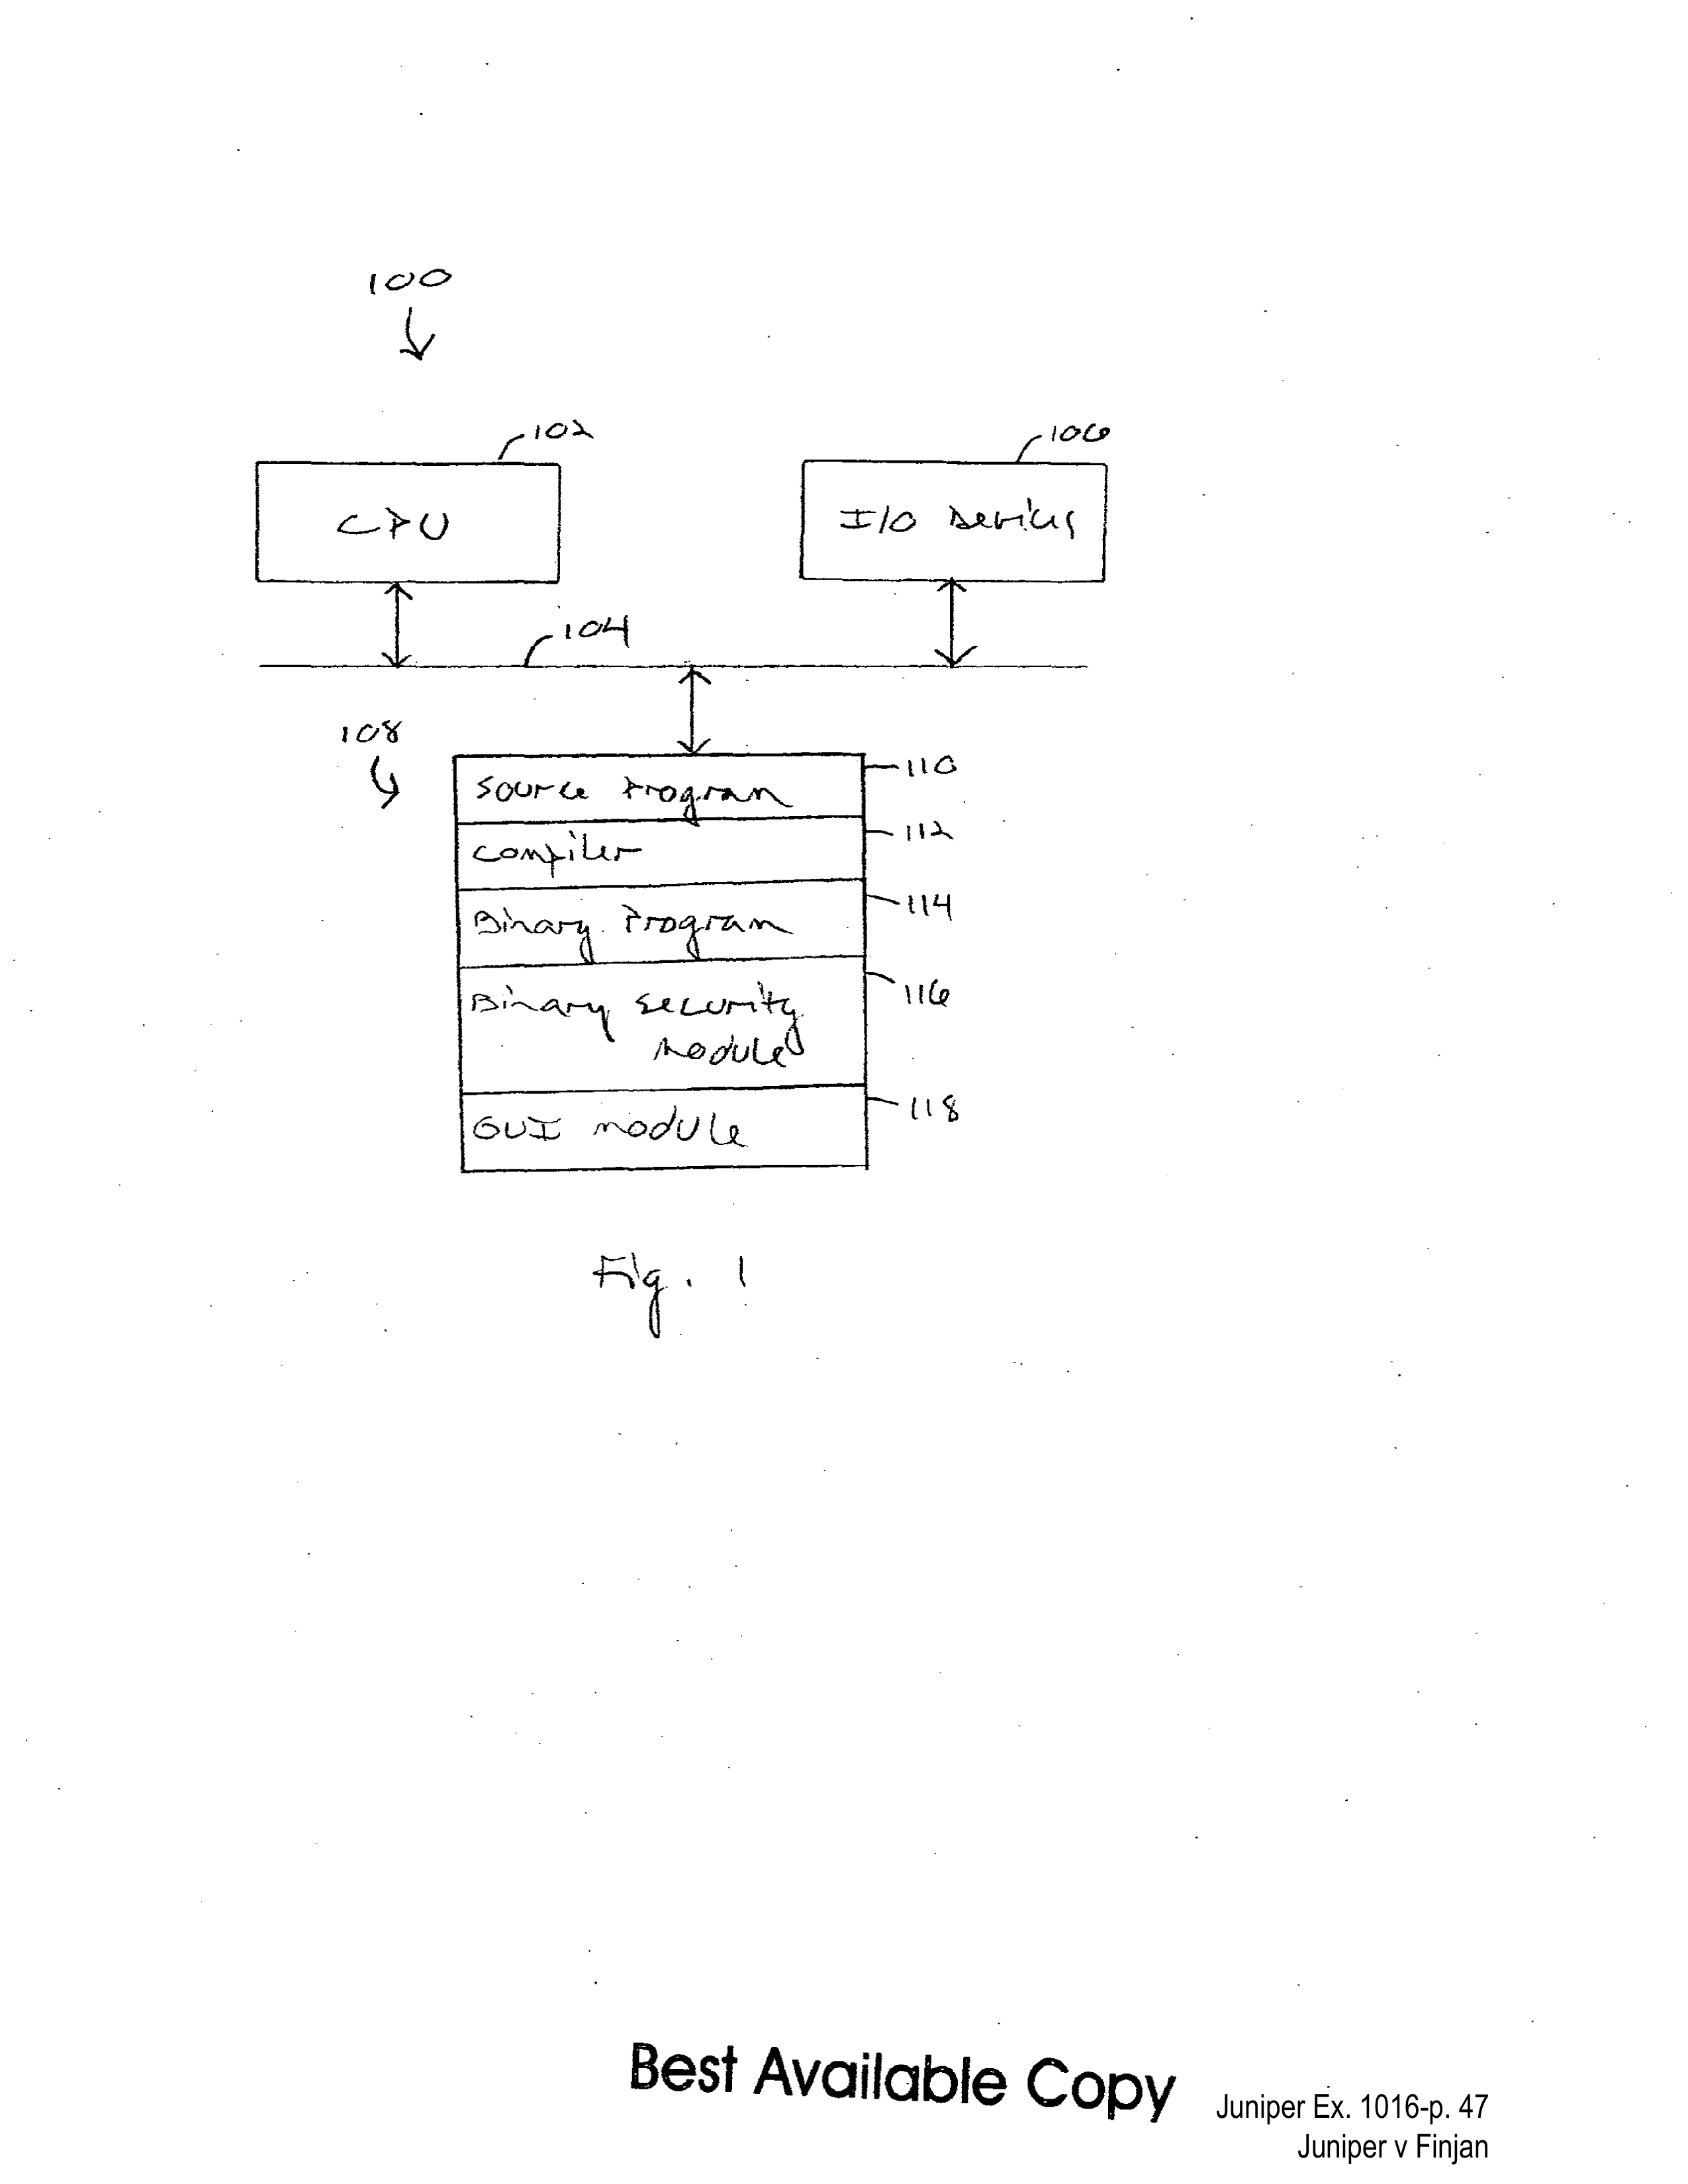 100
102
106
CPU
I/O Devices
104
108
Source Program
110
Compiler
112
Binary Program
114
Binary Security
Module
116
GUI Module
118
Fig. 1
Best Available Copy
Juniper Ex. 1016-p. 47
Juniper v Finjan